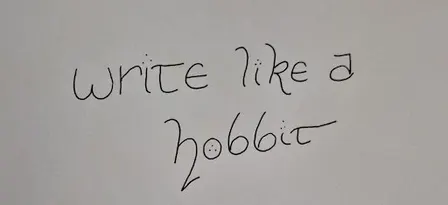 write like a
hobbit